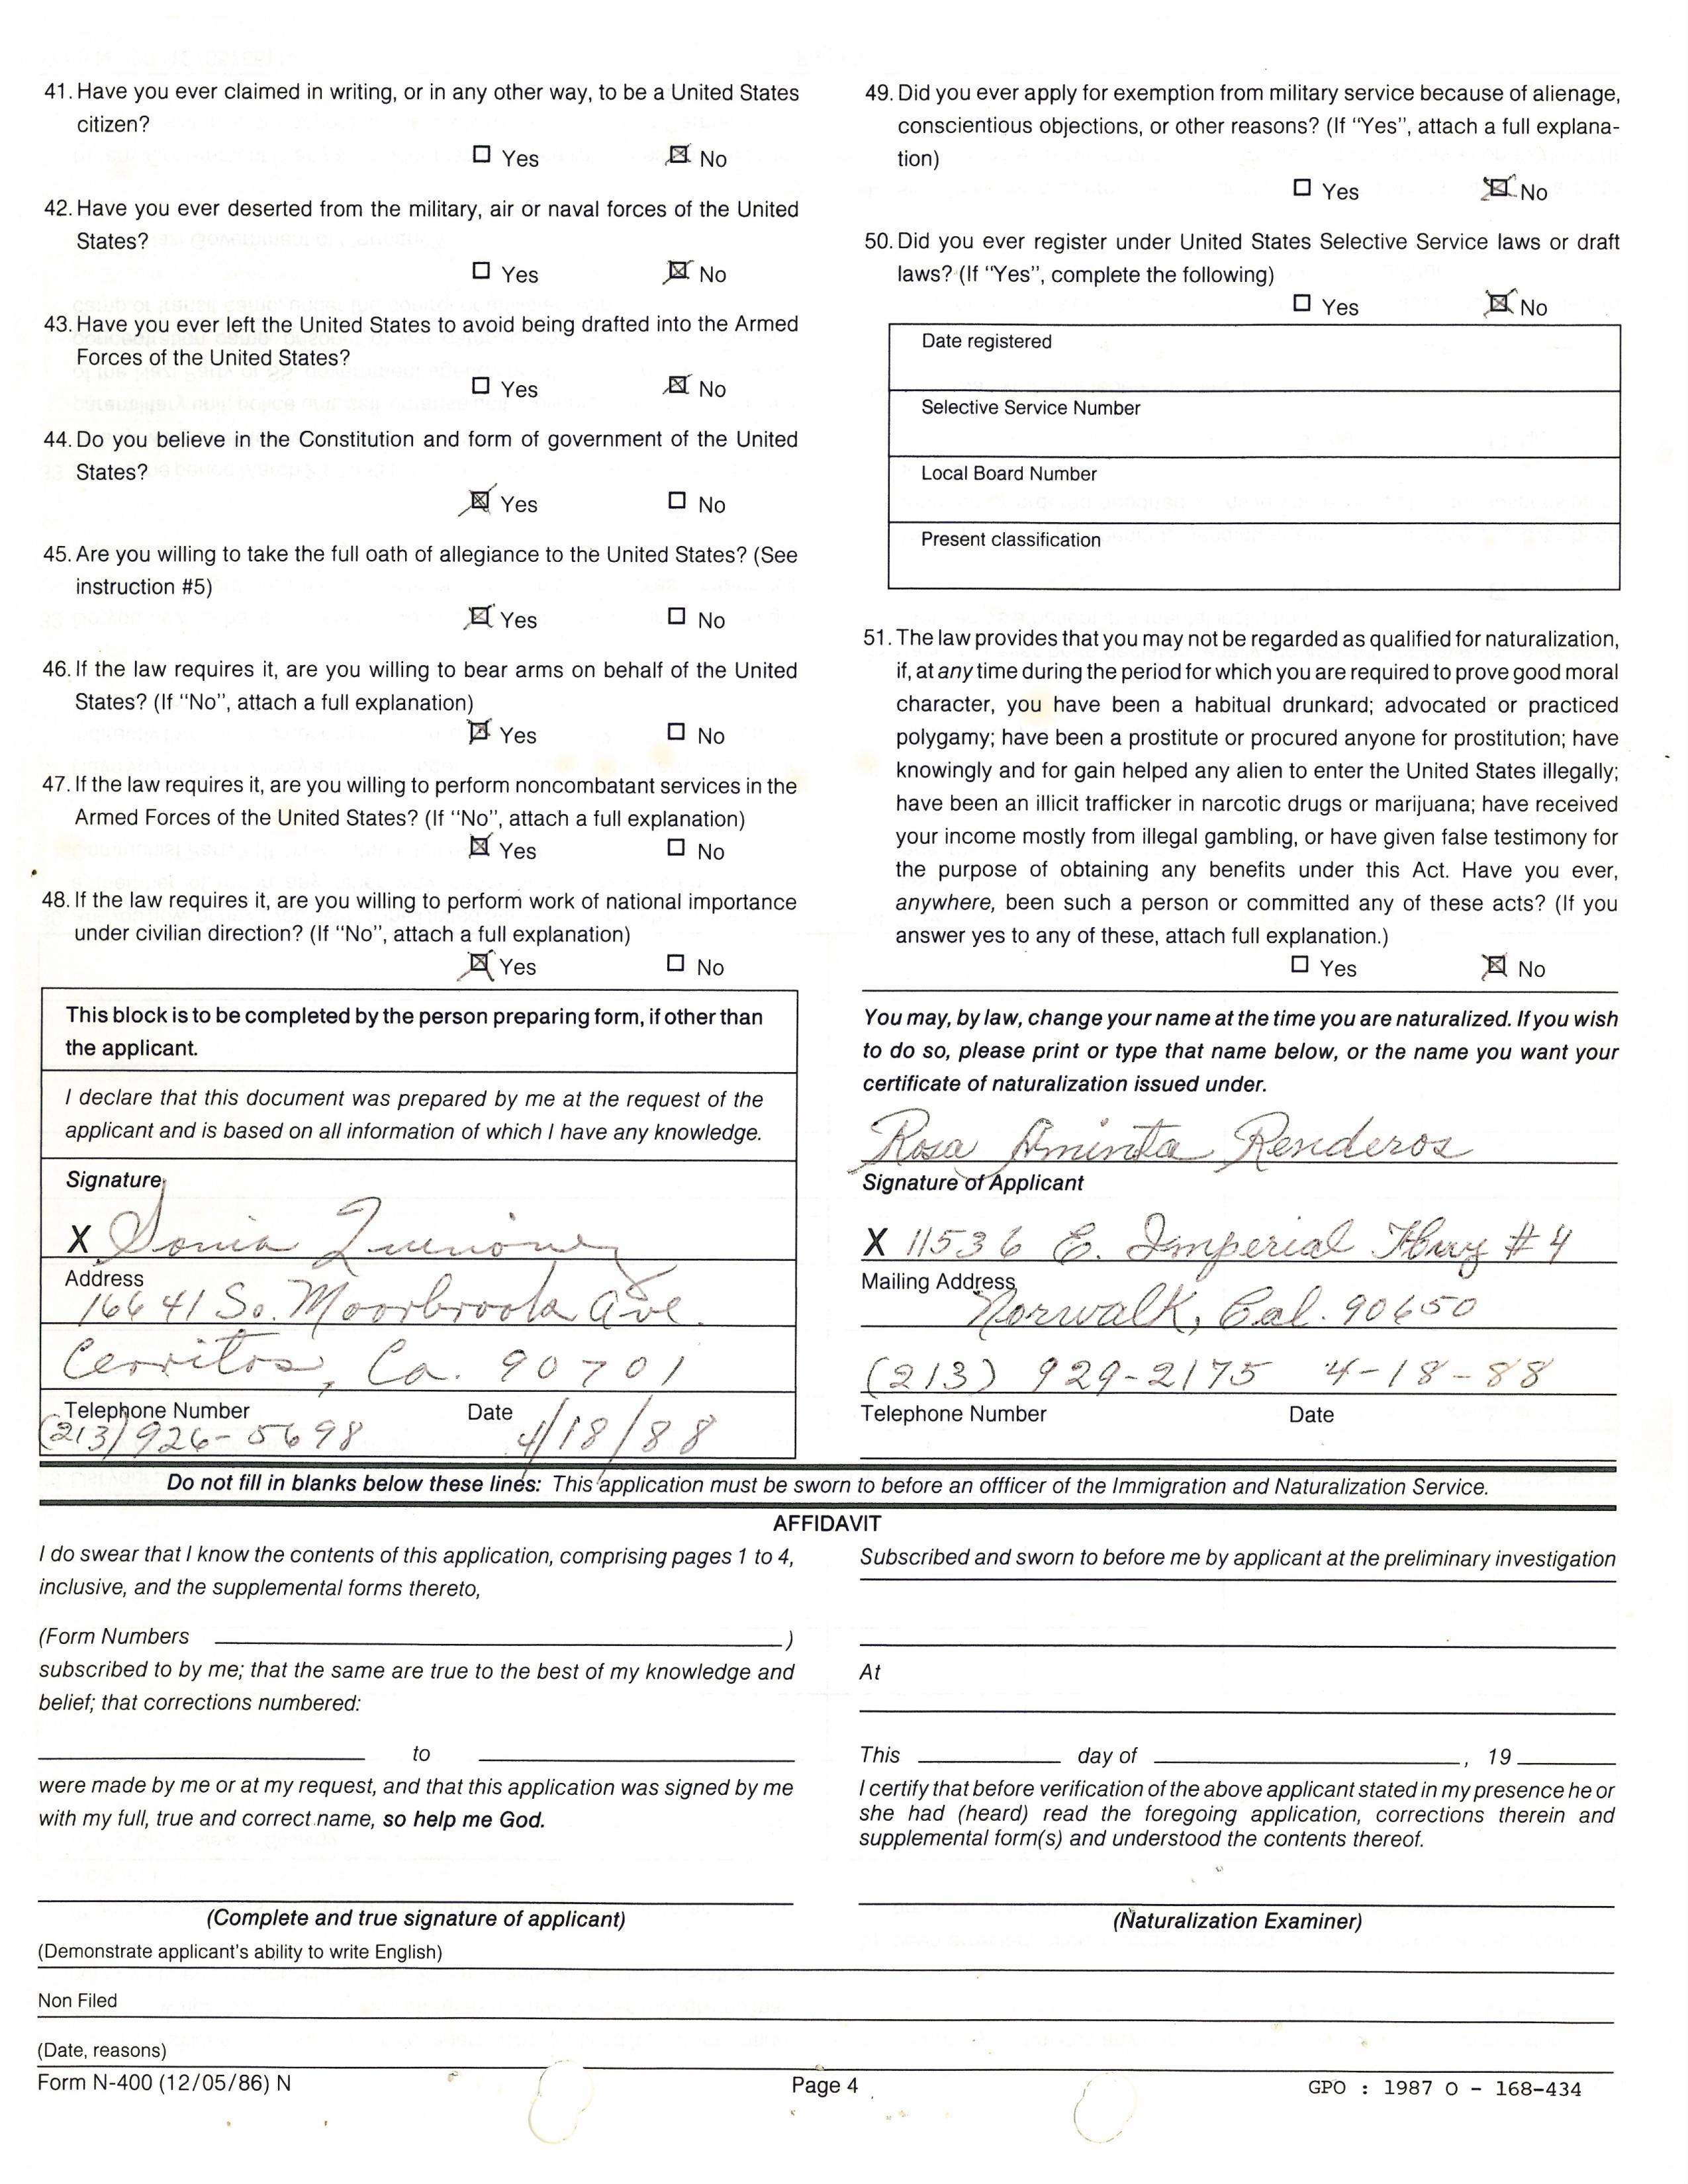 41. Have you ever claimed in writing, or in any other way, to be a United States
citizen?
☐ Yes ☒ No
42. Have you ever deserted from the military, air or naval forces of the United
States?
☐ Yes ☒ No
43. Have you ever left the United States to avoid being drafted into the Armed
Forces of the United States?
☐ Yes ☒ No
44. Do you believe in the Constitution and form of government of the United
States?
☒ Yes ☐ No
45. Are you willing to take the full oath of allegiance to the United States? (See
instruction #5)
☒ Yes ☐ No
46. If the law requires it, are you willing to bear arms on behalf of the United
States? (If "No", attach a full explanation)
☒ Yes ☐ No
47. If the law requires it, are you willing to perform noncombatant services in the
Armed Forces of the United States? (If "No", attach a full explanation)
☒ Yes ☐ No
48. If the law requires it, are you willing to perform work of national importance
under civilian direction? (If "No", attach a full explanation)
☒ Yes ☐ No
This block is to be completed by the person preparing form, if other than
the applicant.
I declare that this document was prepared by me at the request of the
applicant and is based on all information of which I have any knowledge.
Signature
X Sonia Quinonez
Address
16641 So. Moorbrook Ave.
Cerritos, Ca. 90701
Telephone Number Date
(213) 926-5698 4/18/88
49. Did you ever apply for exemption from military service because of alienage,
conscientious objections, or other reasons? (If "Yes", attach a full explana-
tion)
☐ Yes ☒ No
50. Did you ever register under United States Selective Service laws or draft
laws? (If "Yes", complete the following)
☐ Yes ☒ No
Date registered
Selective Service Number
Local Board Number
Present classification
51. The law provides that you may not be regarded as qualified for naturalization,
if, at any time during the period for which you are required to prove good moral
character, you have been a habitual drunkard; advocated or practiced
polygamy; have been a prostitute or procured anyone for prostitution; have
knowingly and for gain helped any alien to enter the United States illegally;
have been an illicit trafficker in narcotic drugs or marijuana; have received
your income mostly from illegal gambling, or have given false testimony for
the purpose of obtaining any benefits under this Act. Have you ever,
anywhere, been such a person or committed any of these acts? (If you
answer yes to any of these, attach full explanation.)
☐ Yes ☒ No
You may, by law, change your name at the time you are naturalized. If you wish
to do so, please print or type that name below, or the name you want your
certificate of naturalization issued under.
Rosa Aminta Renderos
Signature of Applicant
X 11536 E. Imperial Hwy #4
Mailing Address
Norwalk, Cal. 90650
(213) 929-2175 4-18-88
Telephone Number Date
Do not fill in blanks below these lines: This application must be sworn to before an offficer of the Immigration and Naturalization Service.
AFFIDAVIT
I do swear that I know the contents of this application, comprising pages 1 to 4,
inclusive, and the supplemental forms thereto,
(Form Numbers )
subscribed to by me; that the same are true to the best of my knowledge and
belief; that corrections numbered:
to
were made by me or at my request, and that this application was signed by me
with my full, true and correct name, so help me God.
(Complete and true signature of applicant)
Subscribed and sworn to before me by applicant at the preliminary investigation
At
This day of , 19
I certify that before verification of the above applicant stated in my presence he or
she had (heard) read the foregoing application, corrections therein and
supplemental form(s) and understood the contents thereof.
(Naturalization Examiner)
(Demonstrate applicant's ability to write English)
Non Filed
(Date, reasons)
Form N-400 (12/05/86) N Page 4 GPO : 1987 O - 168-434